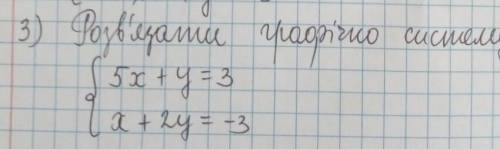 3) Розв'язати графічно систему
5x + y = 3
x + 2y = -3